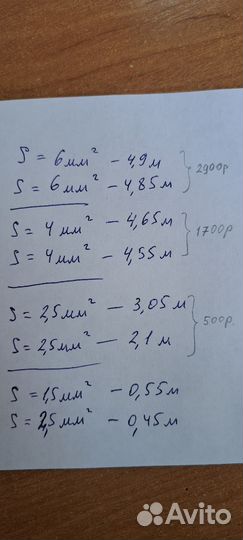 S = 6мм² – 4,9м
S = 6мм² – 4,85м
2900р
S = 4мм² – 4,65м
S = 4мм² – 4,55м
1700р
S = 2,5мм² – 3,05м
S = 2,5мм² – 2,1м
500р.
S = 1,5мм² – 0,55м
S = 2,5мм² – 0,45м
Avito